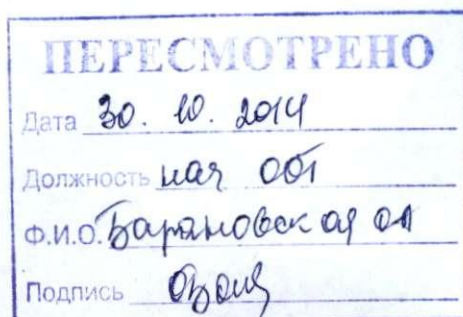 ПЕРЕСМОТРЕНО
Дата 30. 10. 2014
Должность нач
Ф.И.О. Барановская
Подпись